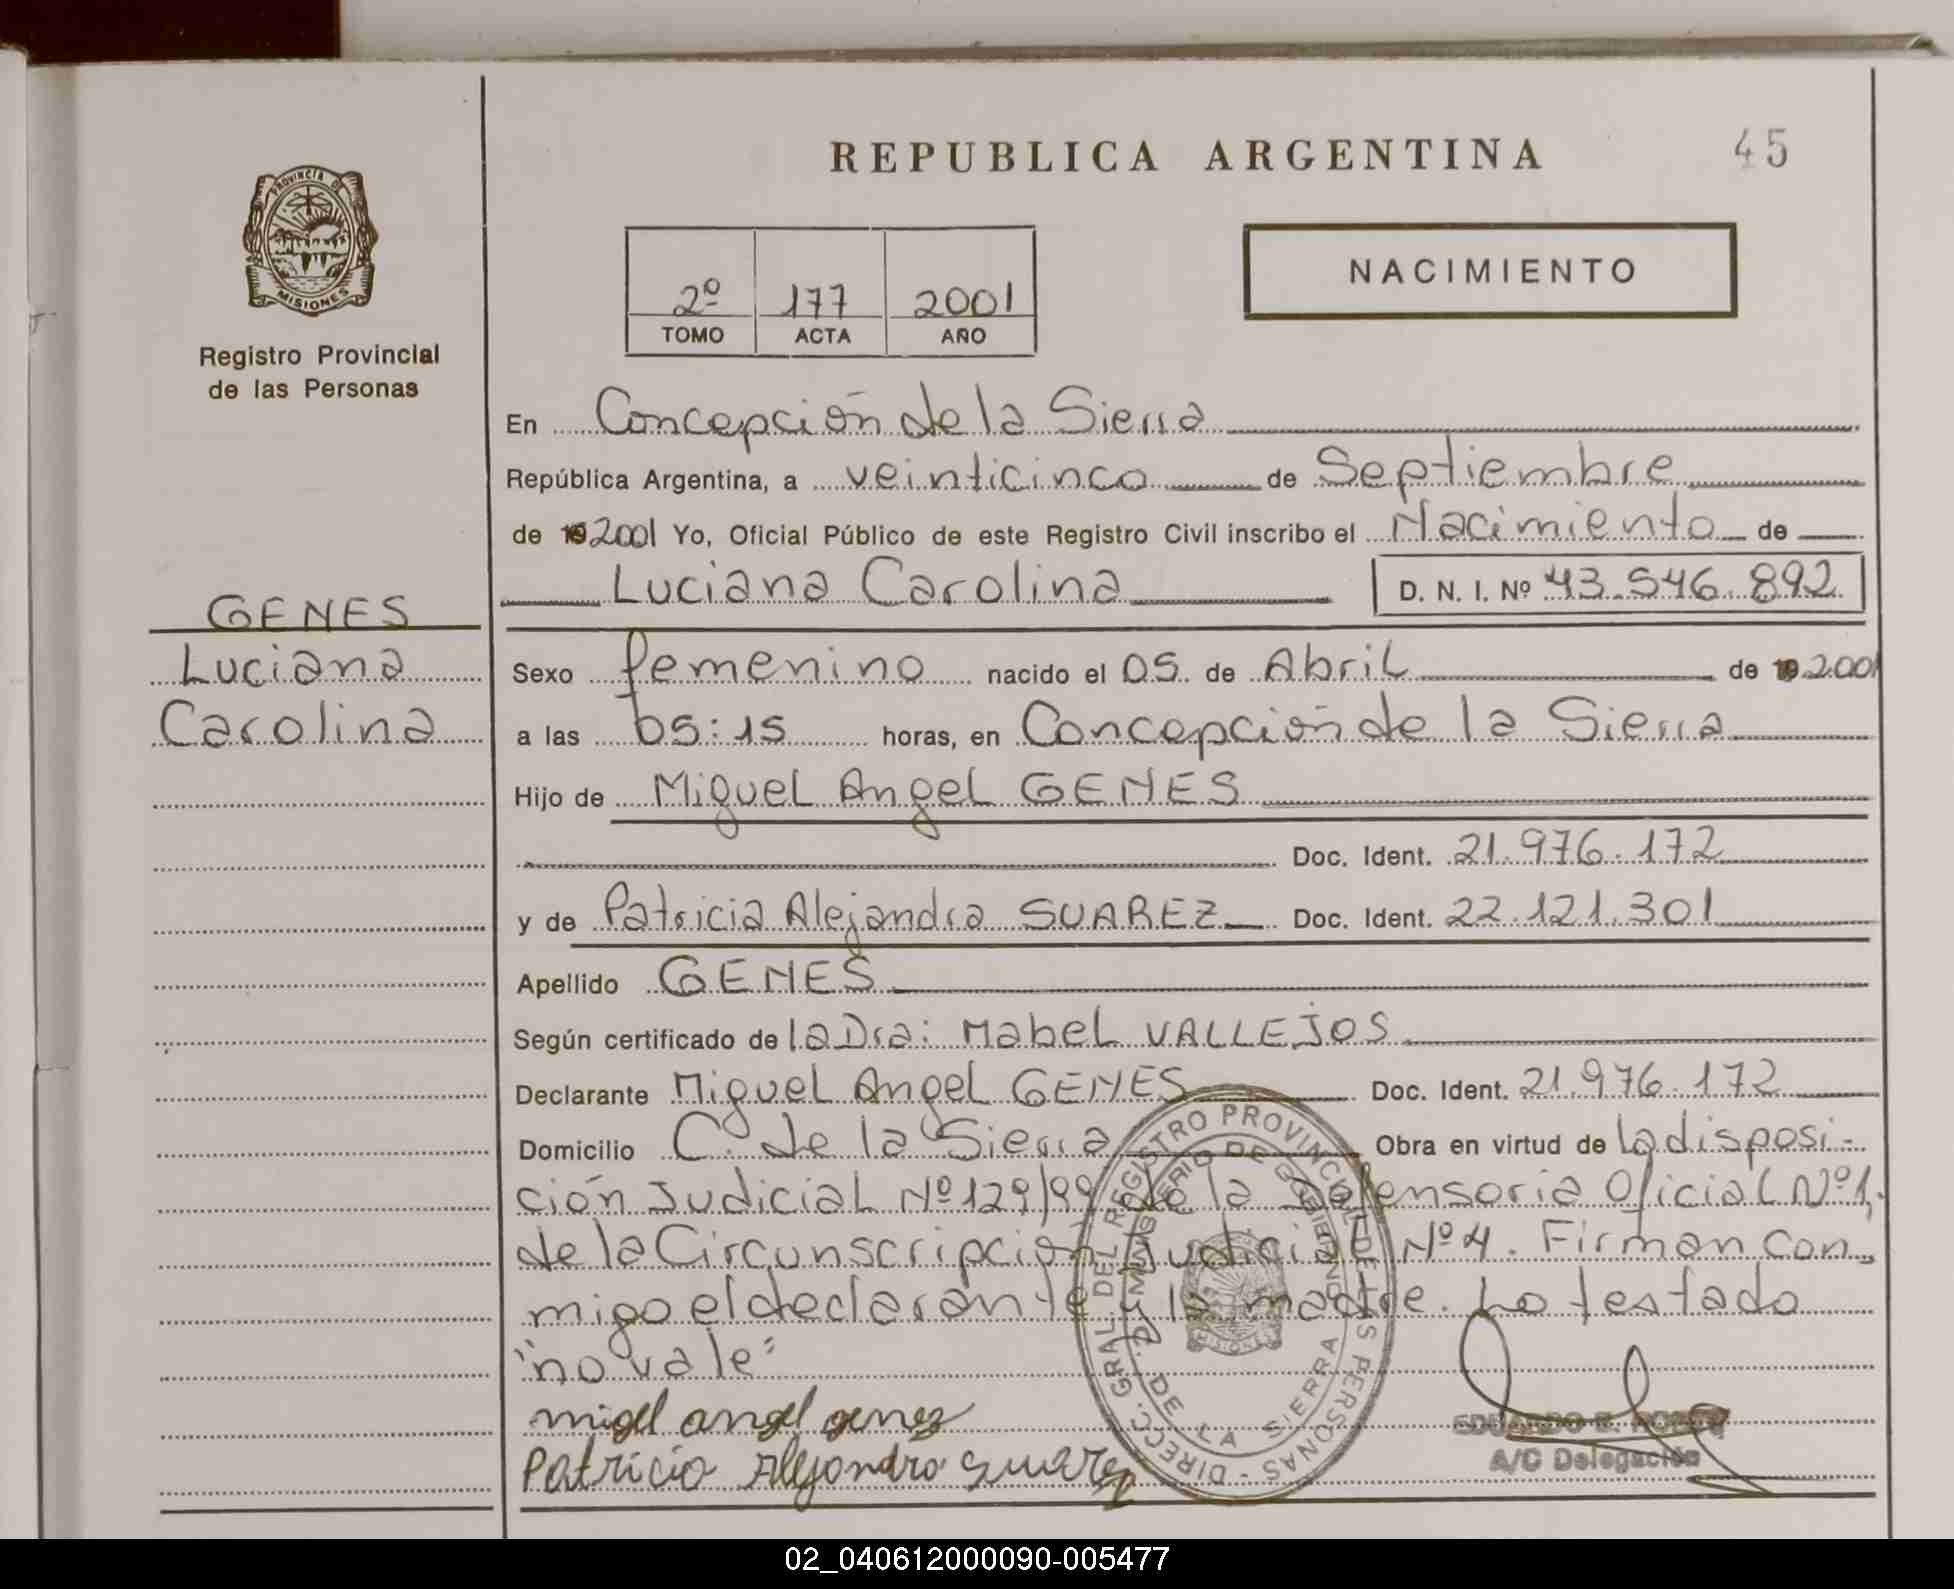 REPUBLICA ARGENTINA
45
PROVINCIA DE
MISIONES
Registro Provincial
de las Personas
2º 177 2001
TOMO ACTA AÑO
NACIMIENTO
En Concepción de la Sierra
República Argentina, a veinticinco de Septiembre
de 19 2001 Yo, Oficial Público de este Registro Civil inscribo el Nacimiento de
Luciana Carolina D. N. I. Nº 43.546.892
GENES
Luciana
Carolina
Sexo femenino nacido el 05 de Abril de 19 2001
a las 05:15 horas, en Concepción de la Sierra
Hijo de Miguel Angel GENES
Doc. Ident. 21.976.172
y de Patricia Alejandra SUAREZ Doc. Ident. 22.121.301
Apellido GENES
Según certificado de la Dra: Mabel VALLEJOS
Declarante Miguel Angel GENES Doc. Ident. 21.976.172
Domicilio C. de la Sierra Obra en virtud de la disposi-
ción Judicial Nº 129/99 de la Defensoria Oficial Nº 1,
de la Circunscripción Judicial Nº 4. Firman con
migo el declarante y la madre. Lo testado
"no vale"
migel angel genez
Patricia Alejandra Suarez
DIRECC. GRAL. DEL REGISTRO PROVINCIAL DE LAS PERSONAS
MINISTERIO DE GOBIERNO
DE LA SIERRA
EDUARDO
A/C Delegación
02_040612000090-005477